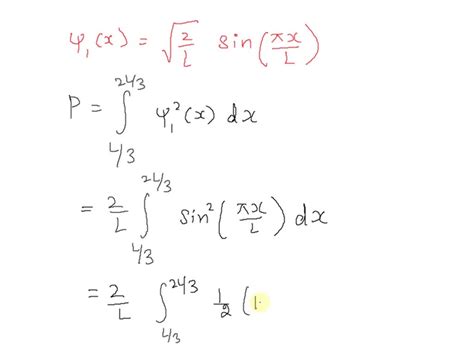 ψ₁(x) = √(2/L) sin(πx/L)
P = ∫_{L/3}^{2L/3} ψ₁²(x) dx
= 2/L ∫_{L/3}^{2L/3} sin²(πx/L) dx
= 2/L ∫_{L/3}^{2L/3} 1/2 (1